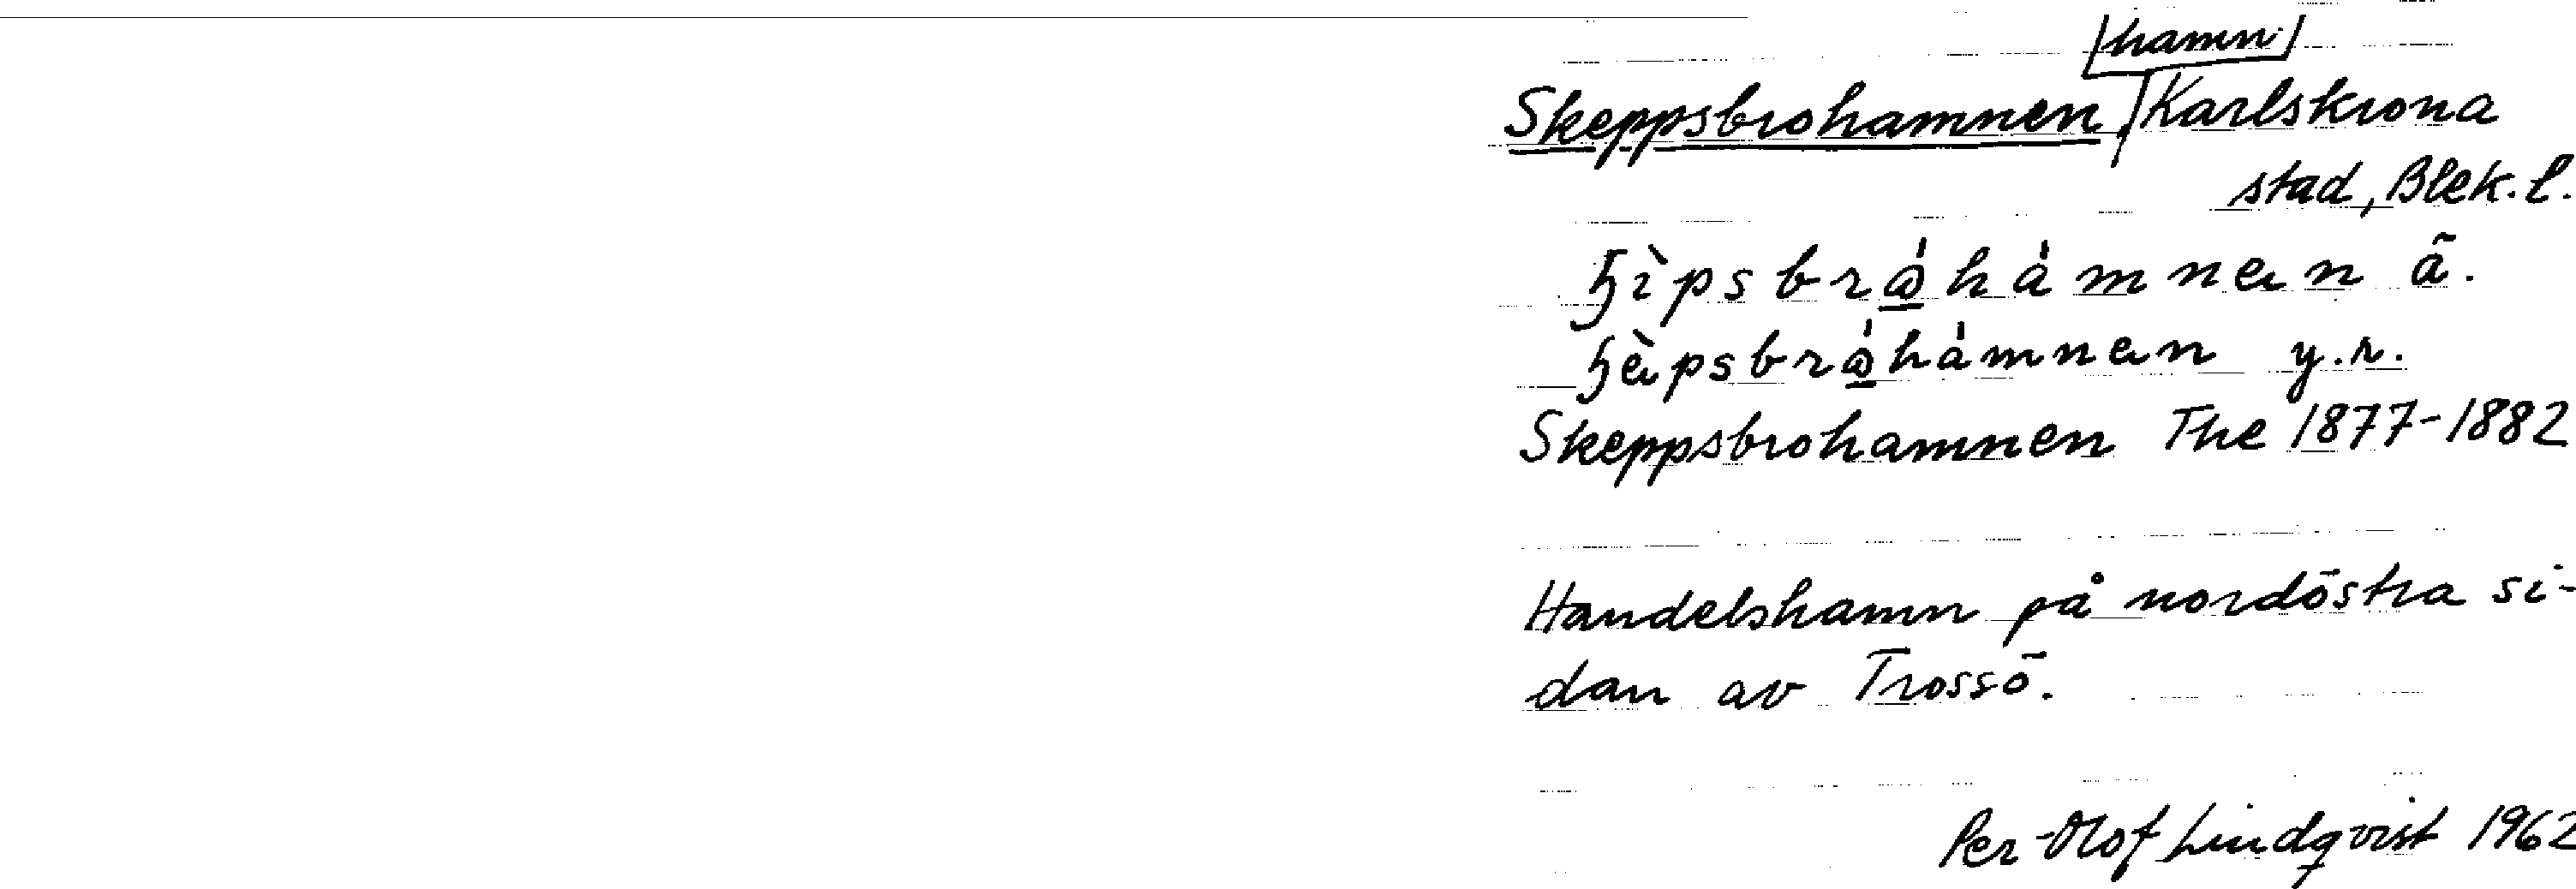 hamn
Skeppsbrohamnen, Karlskrona
stad, Blek. l.
ã.
y.r.
Skeppsbrohamnen The 1877-1882
Handelshamn på nordöstra si-
dan av Trossö.
Per-Olof Lindqvist 1962